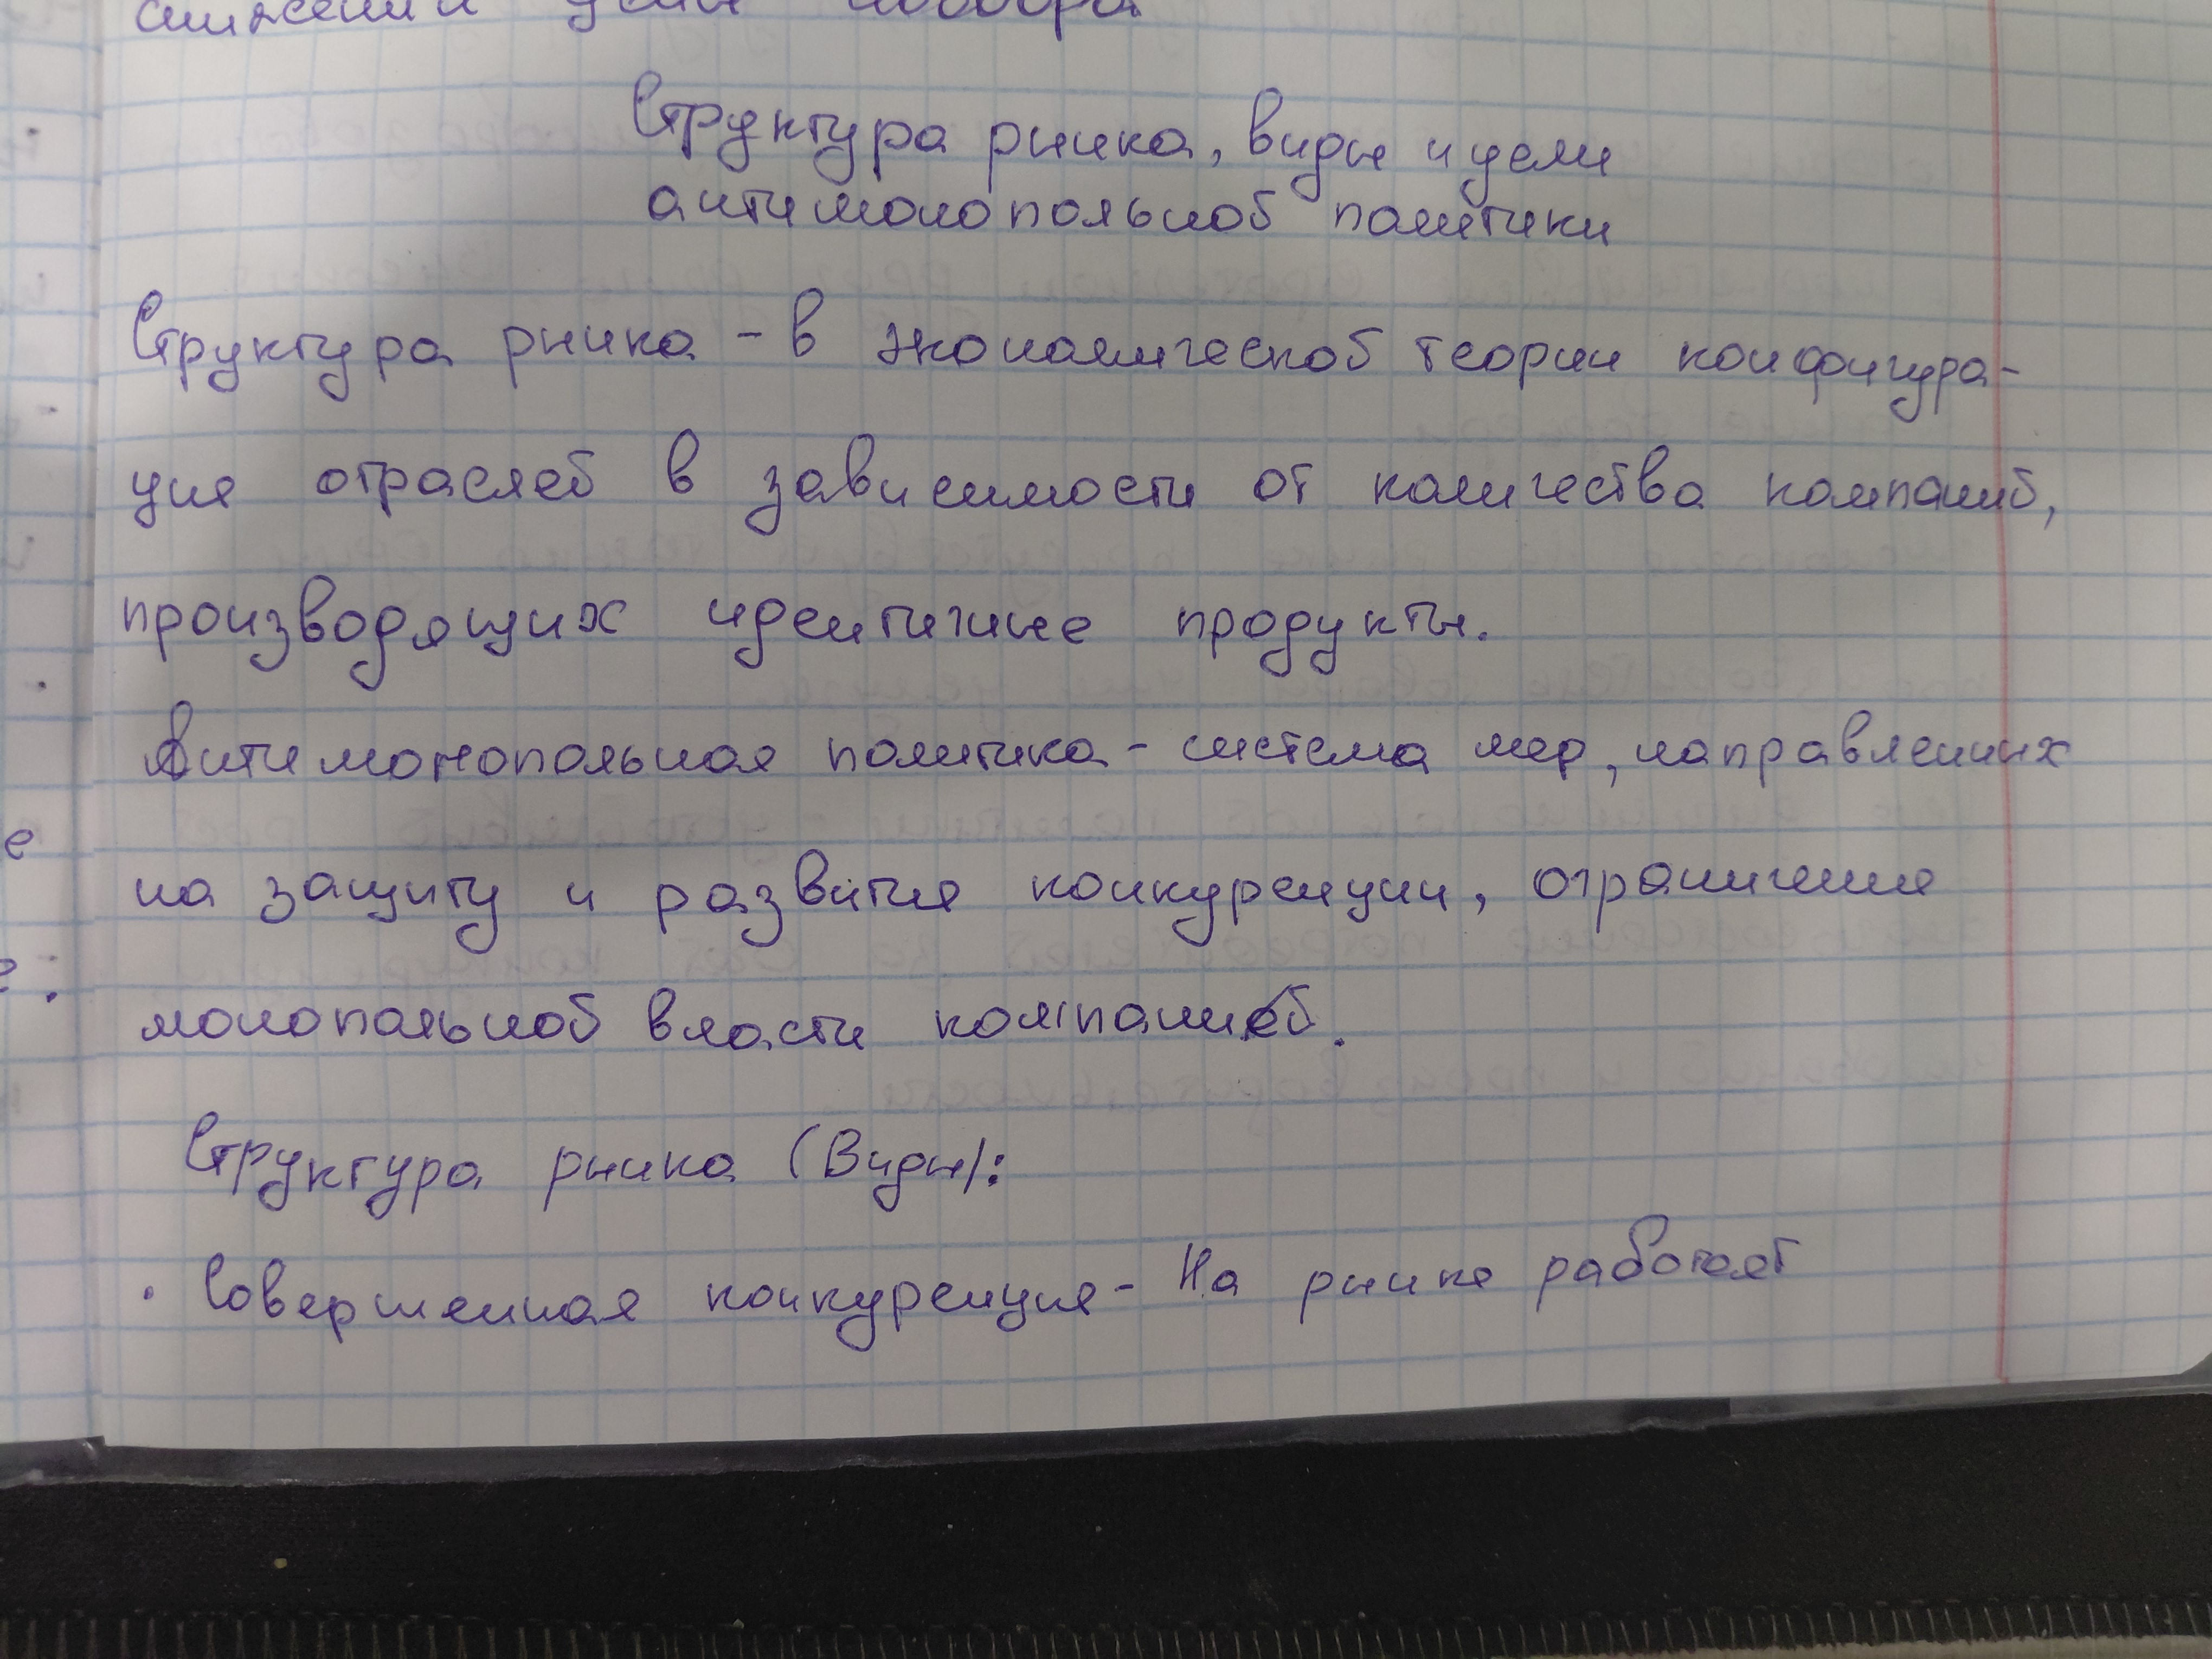 снижении цены товара
Структура рынка, виды и цели
антимонопольной политики
Структура рынка - в экономической теории конфигура-
ция отраслей в зависимости от количества компаний,
производящих идентичные продукты.
Антимонопольная политика - система мер, направленных
на защиту и развития конкуренции, ограничение
монопольной власти компаний.
Структура рынка (Виды):
· Совершенная конкуренция - На рынке работает